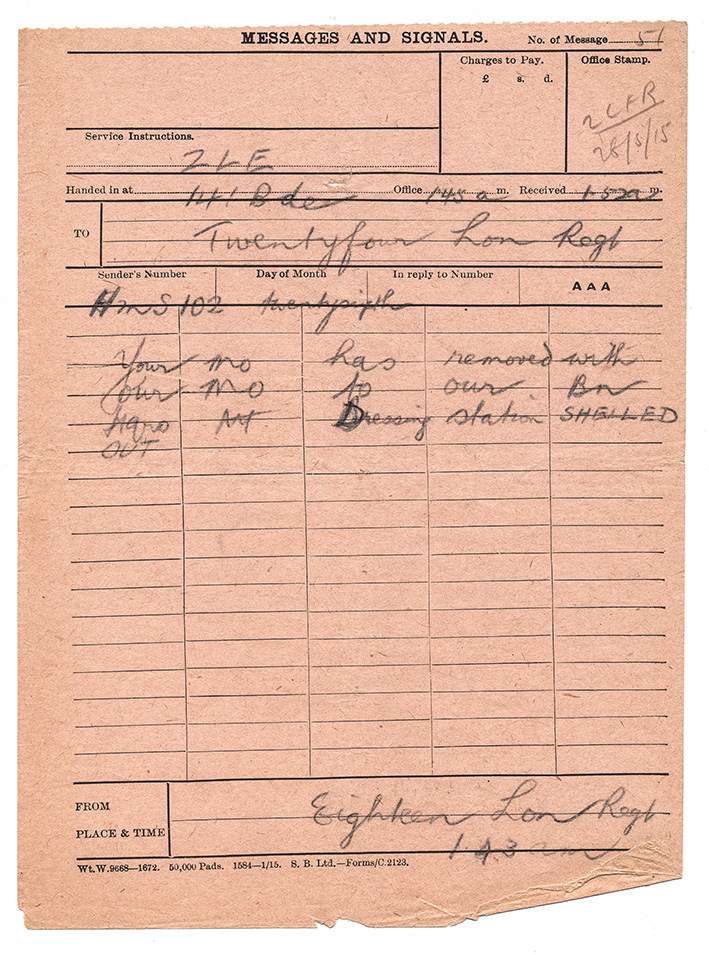 MESSAGES AND SIGNALS. No. of Message 51
Charges to Pay. Office Stamp.
£ s. d.
28/5/15
Service Instructions.
ZLE
Handed in at 141 Bde Office 1.45 a m. Received 1.52a m.
TO Twentyfour Lon Regt
Sender's Number Day of Month In reply to Number AAA
HMS 102 twentysixth
Your MO has removed with
our MO to our Bn
Hqrs Dressing station SHELLED
OUT
FROM Eighteen Lon Regt
PLACE & TIME 1.43 am
Wt.W.9668—1672. 50,000 Pads. 1584—1/15. S. B. Ltd.—Forms/C.2123.